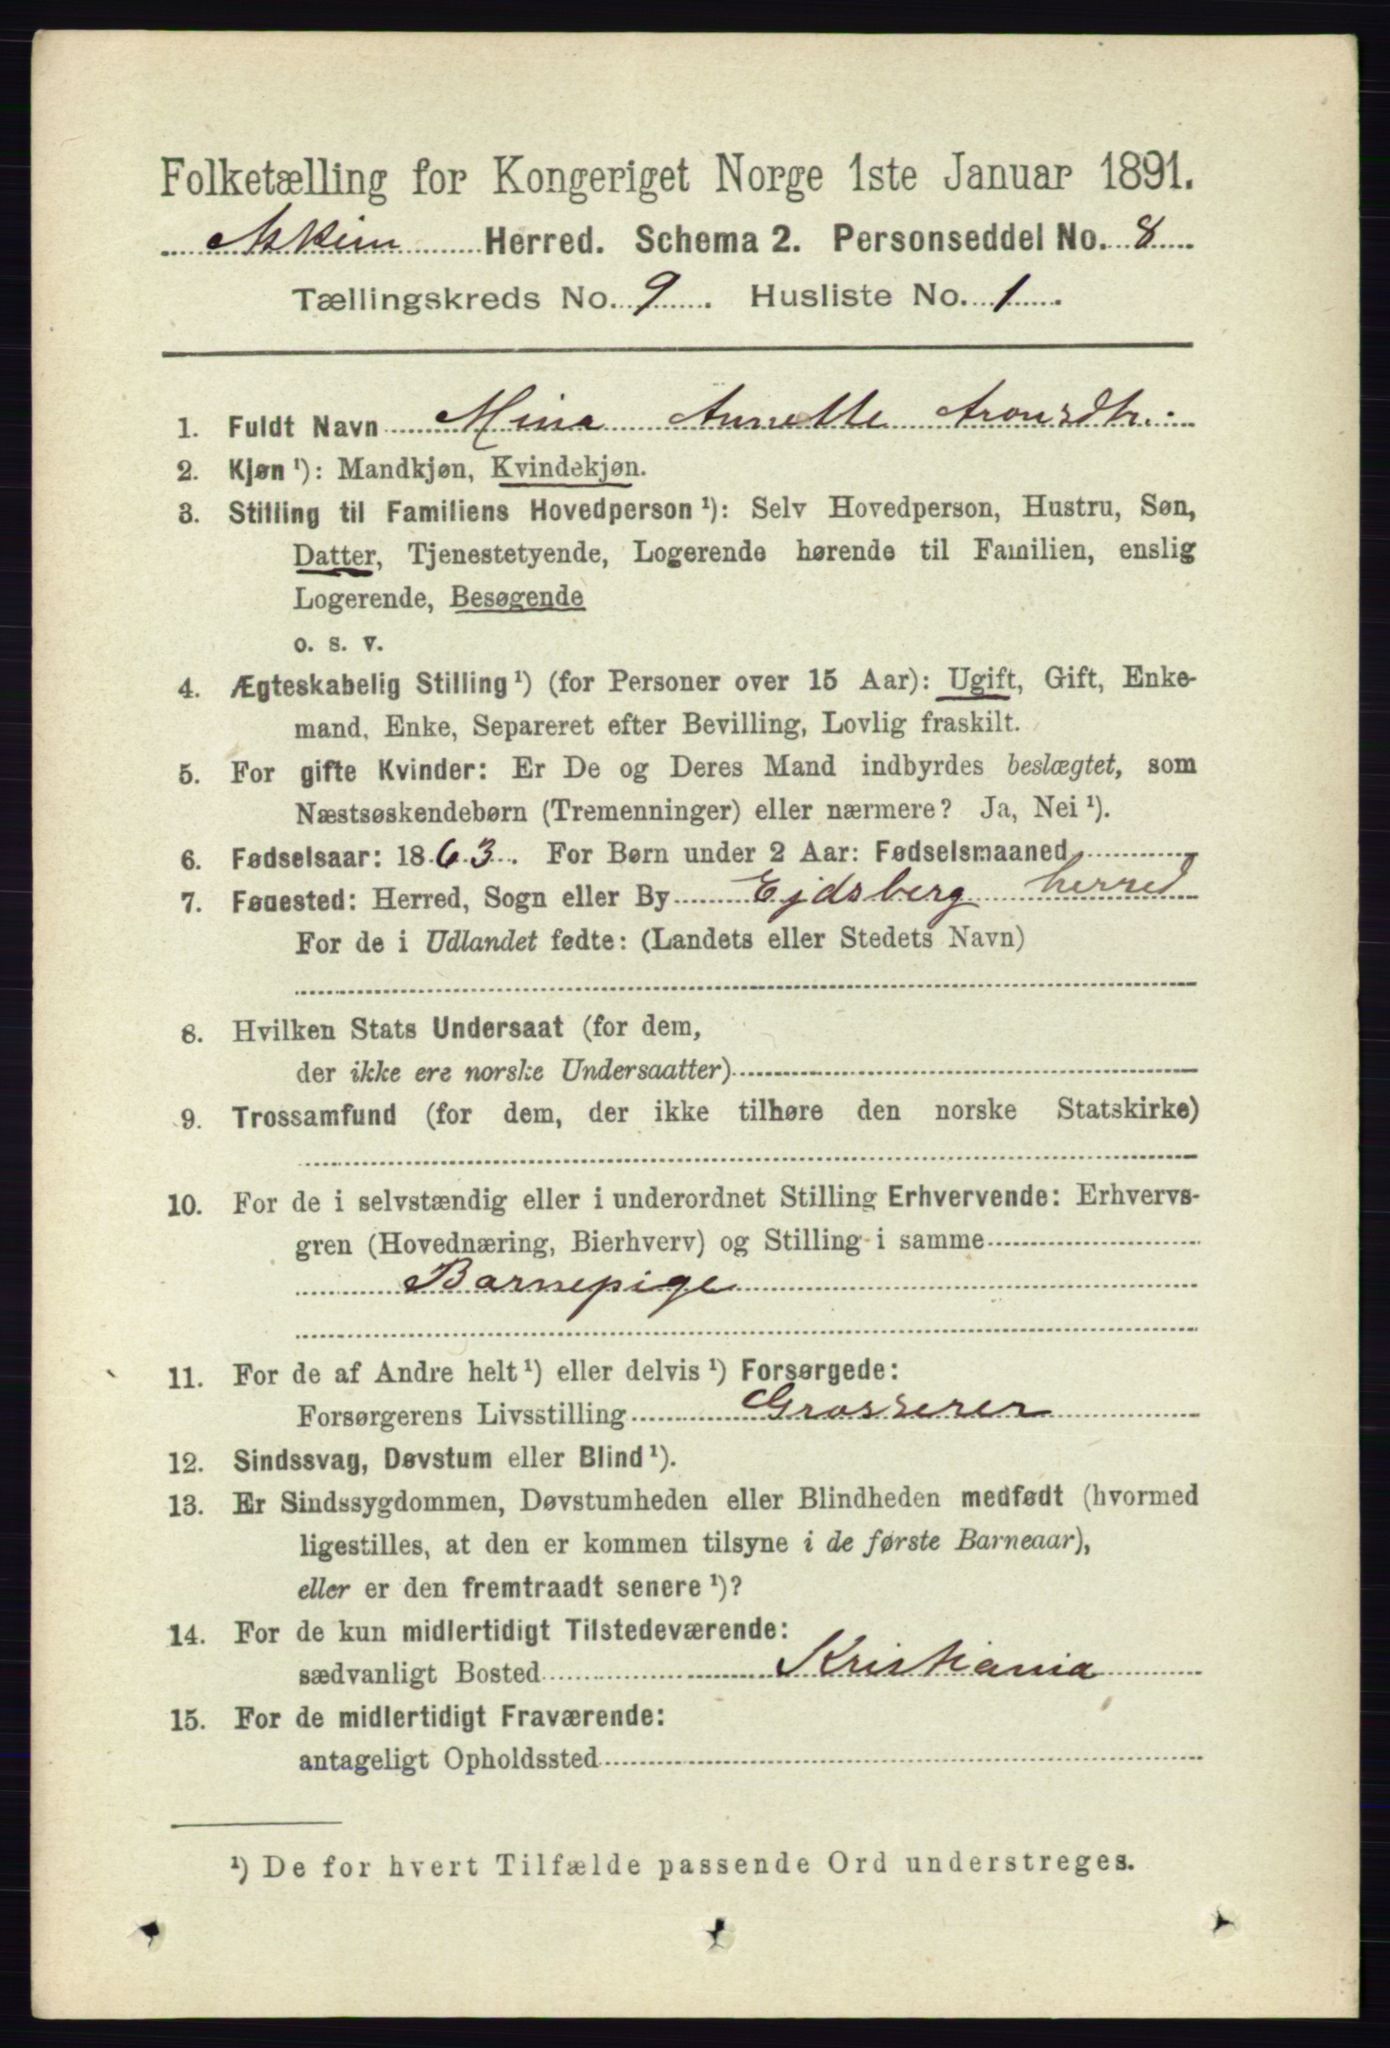 Folketælling for Kongeriget Norge 1ste Januar 1891.
Askim Herred. Schema 2. Personseddel No. 8
Tællingskreds No. 9. Husliste No. 1.
1. Fuldt Navn Mina Annette Aronsdtr.
2. Kjøn ¹): Mandkjøn, Kvindekjøn.
3. Stilling til Familiens Hovedperson ¹): Selv Hovedperson, Hustru, Søn,
Datter, Tjenestetyende, Logerende hørende til Familien, enslig
Logerende, Besøgende
o. s. v.
4. Ægteskabelig Stilling ¹) (for Personer over 15 Aar): Ugift, Gift, Enke-
mand, Enke, Separeret efter Bevilling, Lovlig fraskilt.
5. For gifte Kvinder: Er De og Deres Mand indbyrdes beslægtet, som
Næstsøskendebørn (Tremenninger) eller nærmere? Ja, Nei ¹).
6. Fødselsaar: 1863. For Børn under 2 Aar: Fødselsmaaned
7. Føuested: Herred, Sogn eller By Ejdsberg herred
For de i Udlandet fødte: (Landets eller Stedets Navn)
8. Hvilken Stats Undersaat (for dem,
der ikke ere norske Undersaatter)
9. Trossamfund (for dem, der ikke tilhøre den norske Statskirke)
10. For de i selvstændig eller i underordnet Stilling Erhvervende: Erhvervs-
gren (Hovednæring, Bierhverv) og Stilling i samme
Barnepige
11. For de af Andre helt ¹) eller delvis ¹) Forsørgede:
Forsørgerens Livsstilling Grosserer
12. Sindssvag, Døvstum eller Blind ¹).
13. Er Sindssygdommen, Døvstumheden eller Blindheden medfødt (hvormed
ligestilles, at den er kommen tilsyne i de første Barneaar),
eller er den fremtraadt senere ¹)?
14. For de kun midlertidigt Tilstedeværende:
sædvanligt Bosted Kristiania
15. For de midlertidigt Fraværende:
antageligt Opholdssted
¹) De for hvert Tilfælde passende Ord understreges.